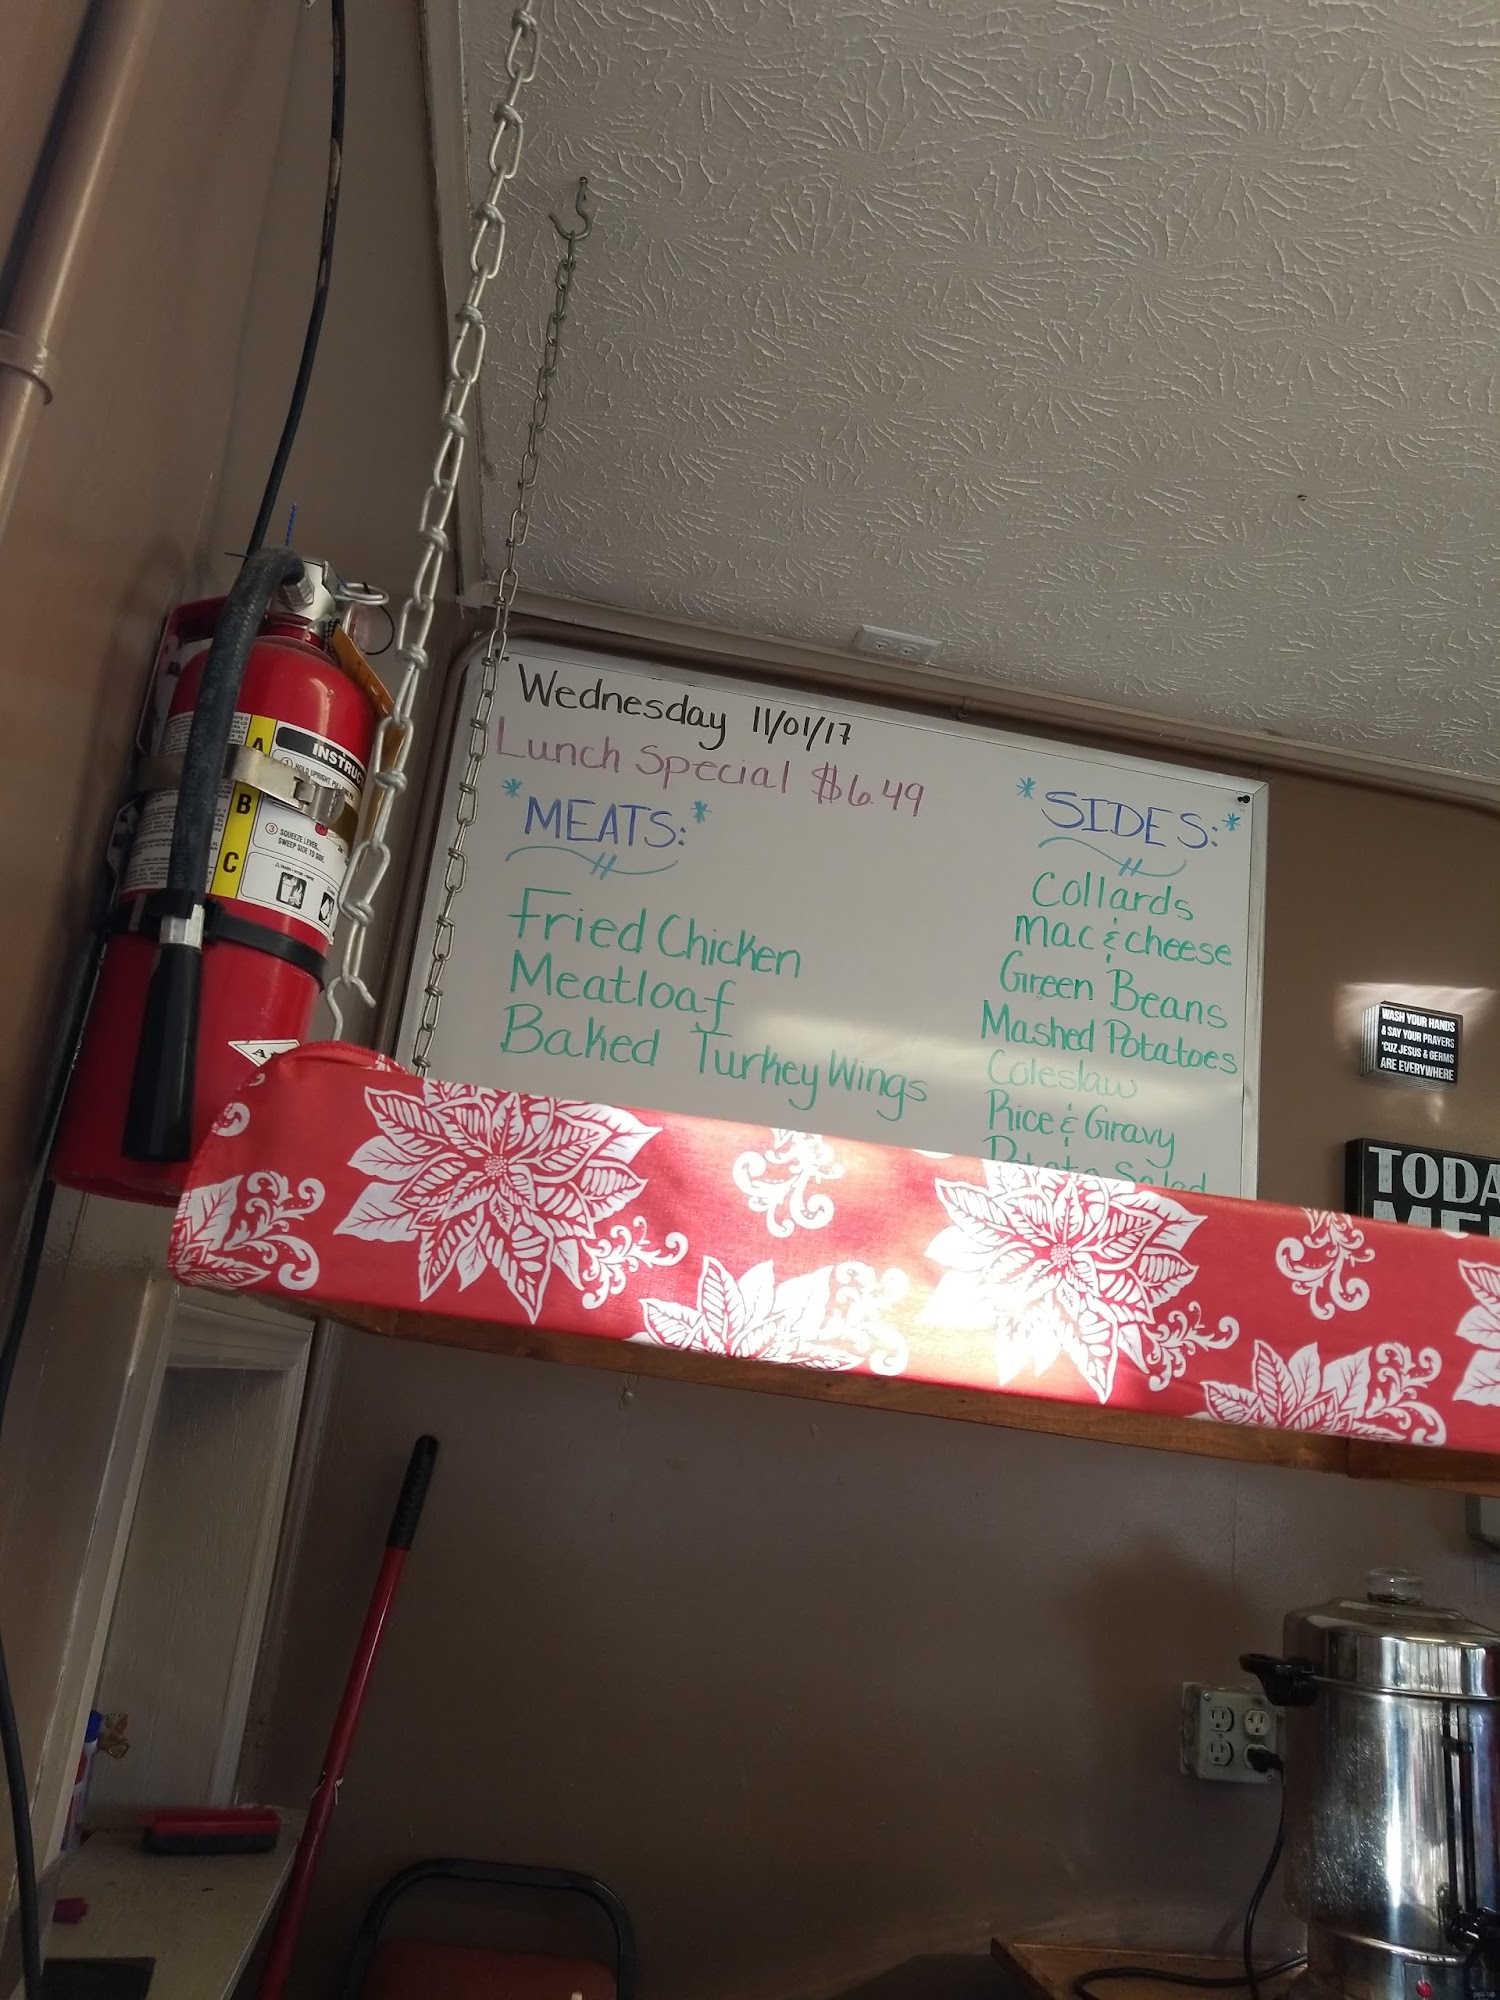 Wednesday 11/01/17
Lunch Special $6.49
*MEATS:*
Fried Chicken
Meatloaf
Baked Turkey Wings
*SIDES:*
Collards
Mac & Cheese
Green Beans
Mashed Potatoes
Coleslaw
Rice & Gravy
Potato Salad
WASH YOUR HANDS
& SAY YOUR PRAYERS
'CUZ JESUS & GERMS
ARE EVERYWHERE
TODA
INSTRUC
HOLD UPRIGHT.
A
B
C
3 SQUEEZE LEVER
SWEEP SIDE TO SIDE.